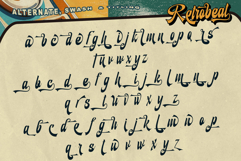 ALTERNATE, SWASH
Retrobeat
a b c d e f g h i j k l m n o p q r s
t u v w x y z
a b c d e f g h i j k l m n o p
q r s t u v w x y z
a b c d e f g h i j k l m n o p
q r s t u v w x y z